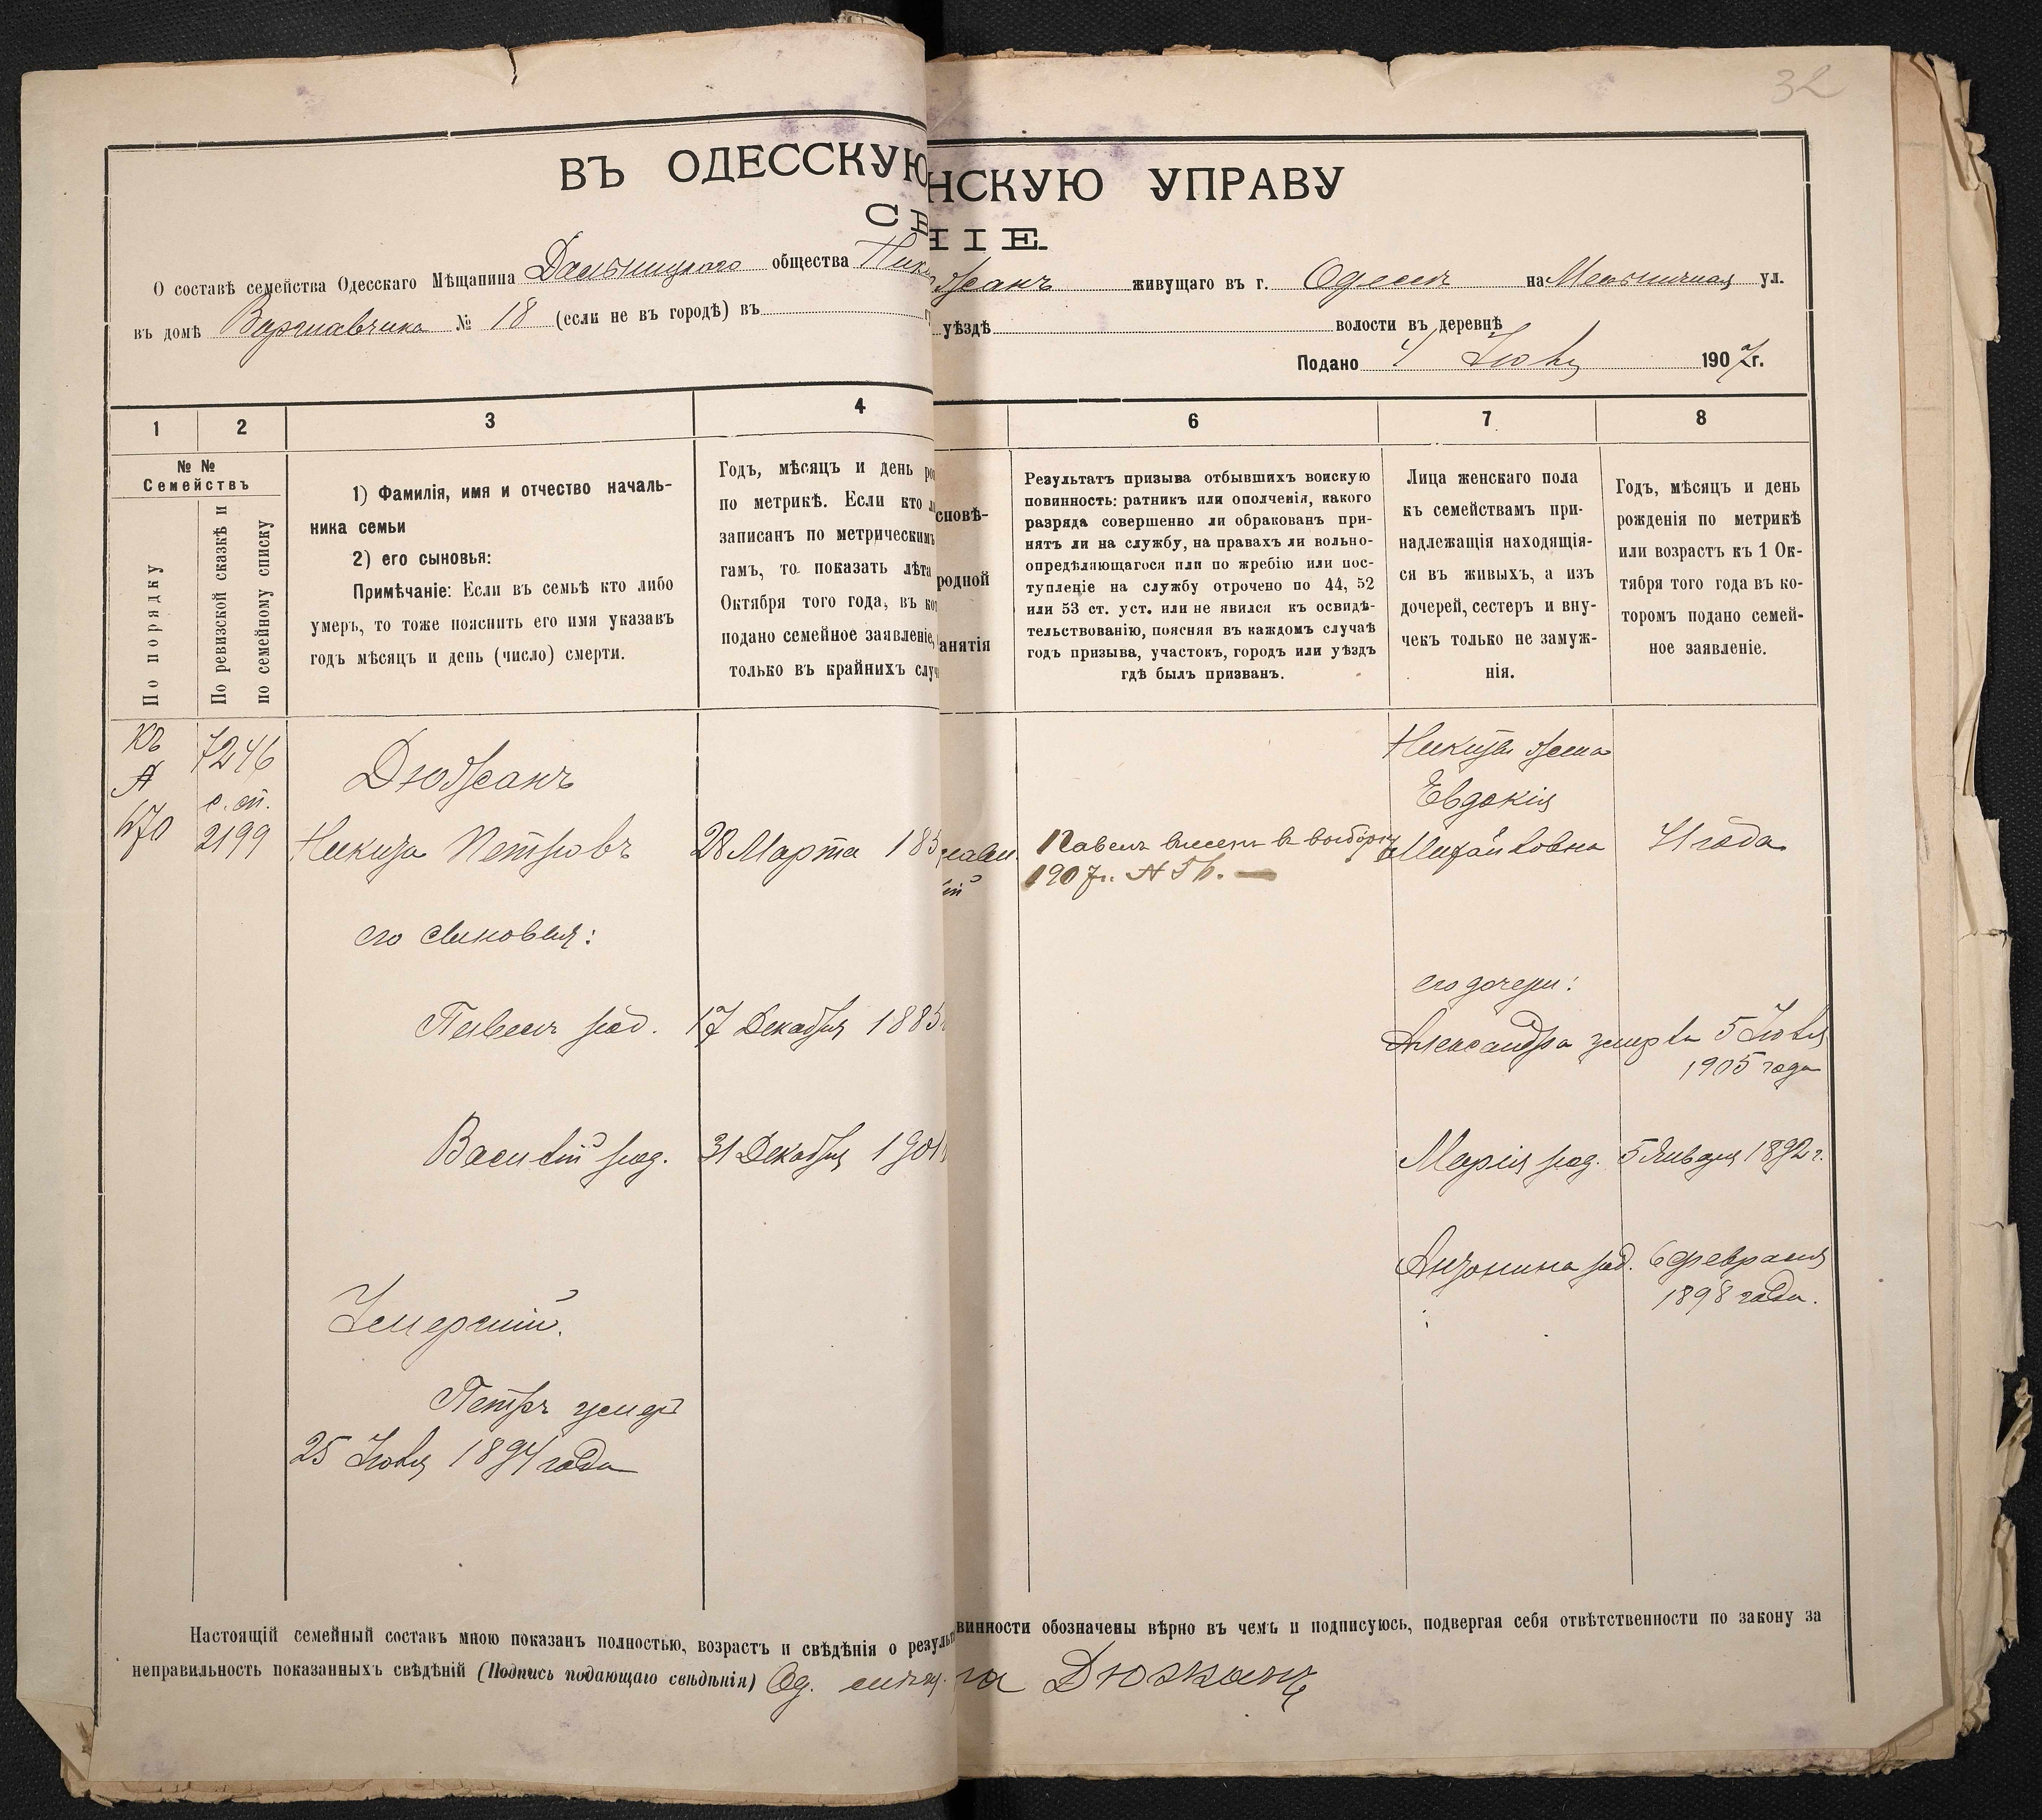 32
ВЪ ОДЕССКУЮ
НСКУЮ УПРАВУ
СВ
НІЕ.
О составѣ семейства Одесскаго Мѣщанина Дальницкаго общества Ник
жанъ живущаго въ г. Одессѣ на Мельничная ул.
въ домѣ Варшавчика № 18 (если не въ городѣ) въ
уѣздѣ волости въ деревнѣ
Подано 4 Іюля 1907г.
1 2 3 4
6 7 8
№ №
Семействъ
По порядку
По ревизской сказкѣ и
по семейному списку
1) Фамилія, имя и отчество началь-
ника семьи
2) его сыновья:
Примѣчаніе: Если въ семьѣ кто либо
умеръ, то тоже пояснить его имя указавъ
годъ мѣсяцъ и день (число) смерти.
Годъ, мѣсяцъ и день ро
по метрикѣ. Если кто
записанъ по метрическимъ
гамъ, то показать лѣта
Октября того года, въ ко
подано семейное заявленіе,
только въ крайнихъ случ
сповѣ-
родной
анятія
Результатъ призыва отбывшихъ воискую
повинность: ратникъ или ополченія, какого
разряда совершенно ли обракованъ при-
нятъ ли на службу, на правахъ ли вольно-
опредѣляющагося или по жребію или пос-
тупленіе на службу отрочено по 44, 52
или 53 ст. уст. или не явился къ освидѣ-
тельствованію, поясняя въ каждомъ случаѣ
годъ призыва, участокъ, городъ или уѣздъ
гдѣ былъ призванъ.
Лица женскаго пола
къ семействамъ при-
надлежащія находящія-
ся въ живыхъ, а изъ
дочерей, сестеръ и вну-
чекъ только не замуж-
нія.
Годъ, мѣсяцъ и день
рожденія по метрикѣ
или возрастъ къ 1 Ок-
тября того года въ ко-
торомъ подано семей-
ное заявленіе.
Къ 7246
А с. сп.
670 2199
Дюжанъ
Никита Петровъ 28 Марта 185
его сыновья:
Павелъ род. 17 Декабря 1885
Василій род. 31 Декабря 1901
Умершій.
Петръ умеръ
25 Іюля 1894 года
Павелъ внесенъ в выборку
1907г.
Никиты жена
Евдокія
Михайловна 41 года
его дочери:
Александра умерла 5 Іюля
1905 года
Марія род. 5 Января 1892 г.
Антонина род. 6 февраля
1898 года.
Настоящій семейный составъ мною показанъ полностью, возрастъ и свѣдѣнія о результ
винности обозначены вѣрно въ чемъ и подписуюсь, подвергая себя отвѣтственности по закону за
неправильность показанныхъ свѣдѣній (Подпись подающаго свѣдѣнія) Од. мѣщ.
та Дюжанъ